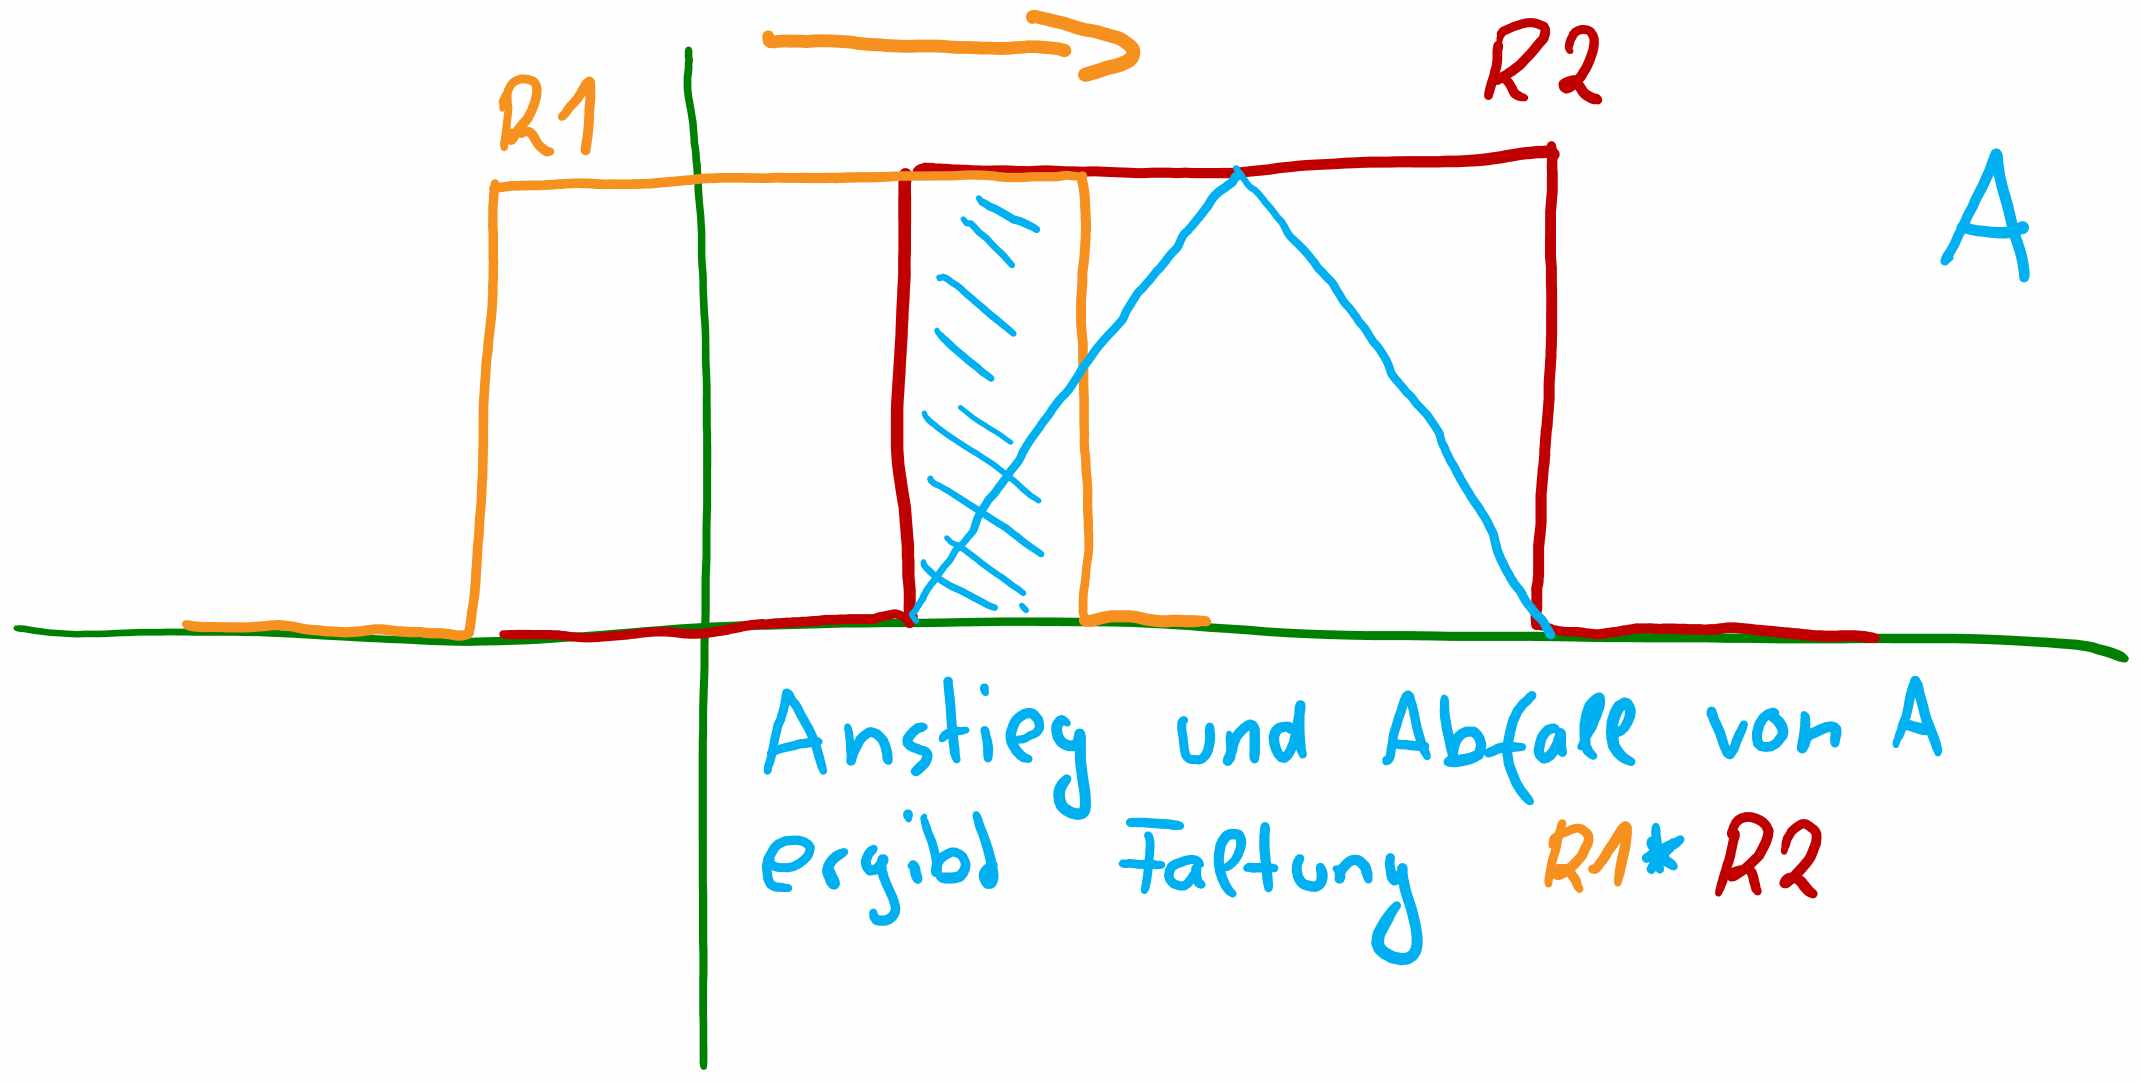 R2
R1
A
Anstieg und Abfall von A
ergibd Faltung R1*R2